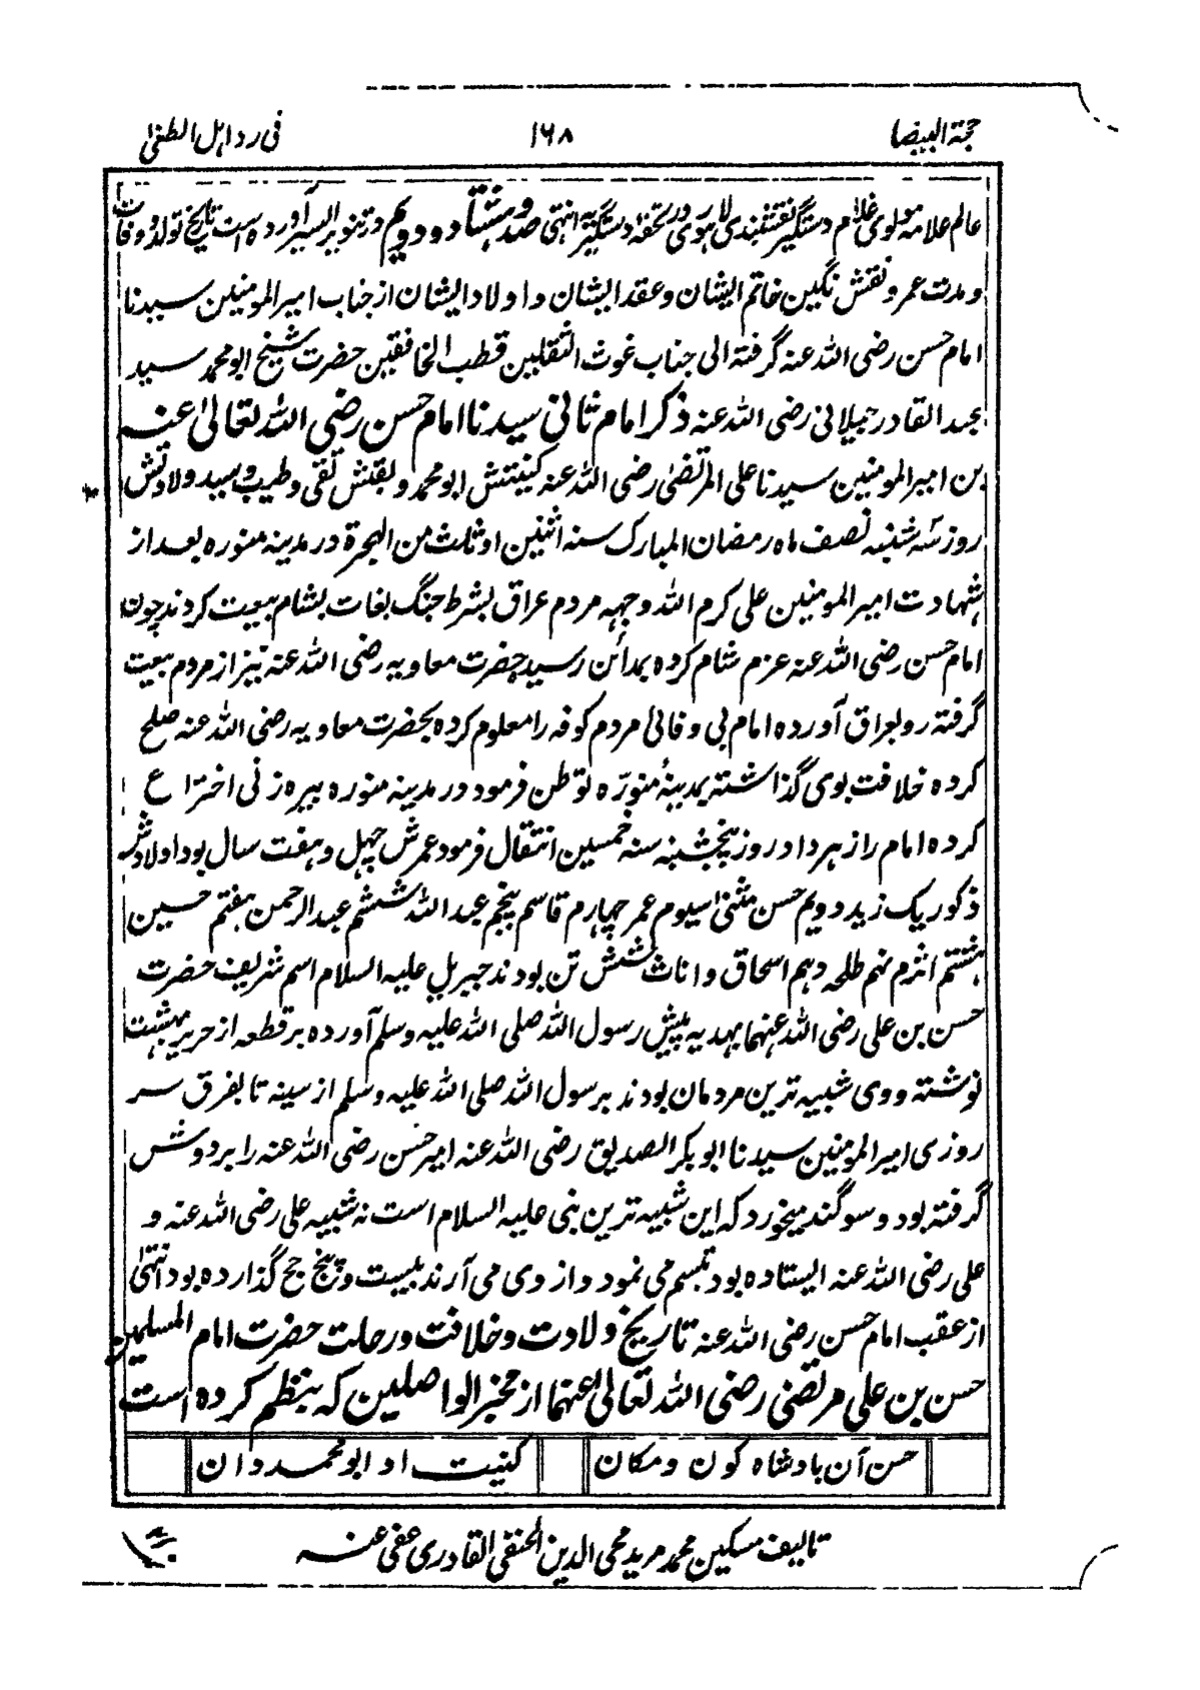 حجة البیضا
۱۶۸
فی رد اہل الطغیٰ
عالم علامہ مولوی غلام دستگیر نقشبندی لاہوری در تحفہ دستگیریہ انتہی صد و ہشتاد و دویم در تنویر السیر آوردہ است تاریخ تولد و وفات
و مدت عمر و نقش نگین خاتم ایشان و عقد ایشان و اولاد ایشان از جناب امیر المومنین سیدنا
امام حسن رضی اللہ عنہ گرفتہ الی جناب غوث الثقلین قطب الخافقین حضرت شیخ ابو محمد سید
عبد القادر جیلانی رضی اللہ عنہ ذکر امام ثانی سیدنا امام حسن رضی اللہ تعالیٰ عنہ
بن امیر المومنین سیدنا علی المرتضیٰ رضی اللہ عنہ کنیتش ابو محمد و لقبش تقی و طیب و سید ولادتش
روز سہ شنبہ نصف ماہ رمضان المبارک سنہ اثنین او ثلث من الہجرۃ در مدینہ منورہ بعد از
شہادت امیر المومنین علی کرم اللہ وجہہ مردم عراق بشرط جنگ بغات بشام بیعت کردند چون
امام حسن رضی اللہ عنہ عزم شام کردہ بمدائن رسید حضرت معاویہ رضی اللہ عنہ نیز از مردم بیعت
گرفتہ رو بعراق آوردہ امام بی وفائی مردم کوفہ را معلوم کردہ بحضرت معاویہ رضی اللہ عنہ صلح
کردہ خلافت بوی گذاشتہ بمدینہ منورّہ توطن فرمود در مدینہ منورہ بیرہ زنی اختراع
کردہ امام را زہر داد روز پنجشنبہ سنہ خمسین انتقال فرمود عمرش چہل و ہفت سال بود اولادش
ذکور یک زید دویم حسن مثنیٰ سیوم عمر چہارم قاسم پنجم عبد اللہ ششم عبد الرحمن ہفتم حسین
ہشتم اثرم نہم طلحہ دہم اسحاق و اناث شش تن بودند جبریل علیہ السلام اسم شریف حضرت
حسن بن علی رضی اللہ عنہما بہدیہ پیش رسول اللہ صلی اللہ علیہ وسلم آوردہ بر قطعہ از حریر بہشت
نوشتہ و وی شبیہ ترین مردمان بودند برسول اللہ صلی اللہ علیہ وسلم از سینہ تا بفرق سر
روزی امیر المومنین سیدنا ابو بکر الصدیق رضی اللہ عنہ امیر حسن رضی اللہ عنہ را بر دوش
گرفتہ بود و سوگند میخورد کہ این شبیہ ترین بنی علیہ السلام است نہ شبیہ علی رضی اللہ عنہ و
علی رضی اللہ عنہ ایستادہ بود تبسم می نمود و از وی می آرند بیست و پنج حج گذاردہ بود انتہیٰ
از عقب امام حسن رضی اللہ عنہ تاریخ ولادت و خلافت و رحلت حضرت امام المسلمین
حسن بن علی مرتضی رضی اللہ تعالیٰ عنہما از مخبر الواصلین کہ بنظم کردہ است
حسن آن بادشاہ کون و مکان
کنیت او ابو محمد دان
تالیف مسکین محمد مرید محی الدین الحنفی القادری عفی عنہ